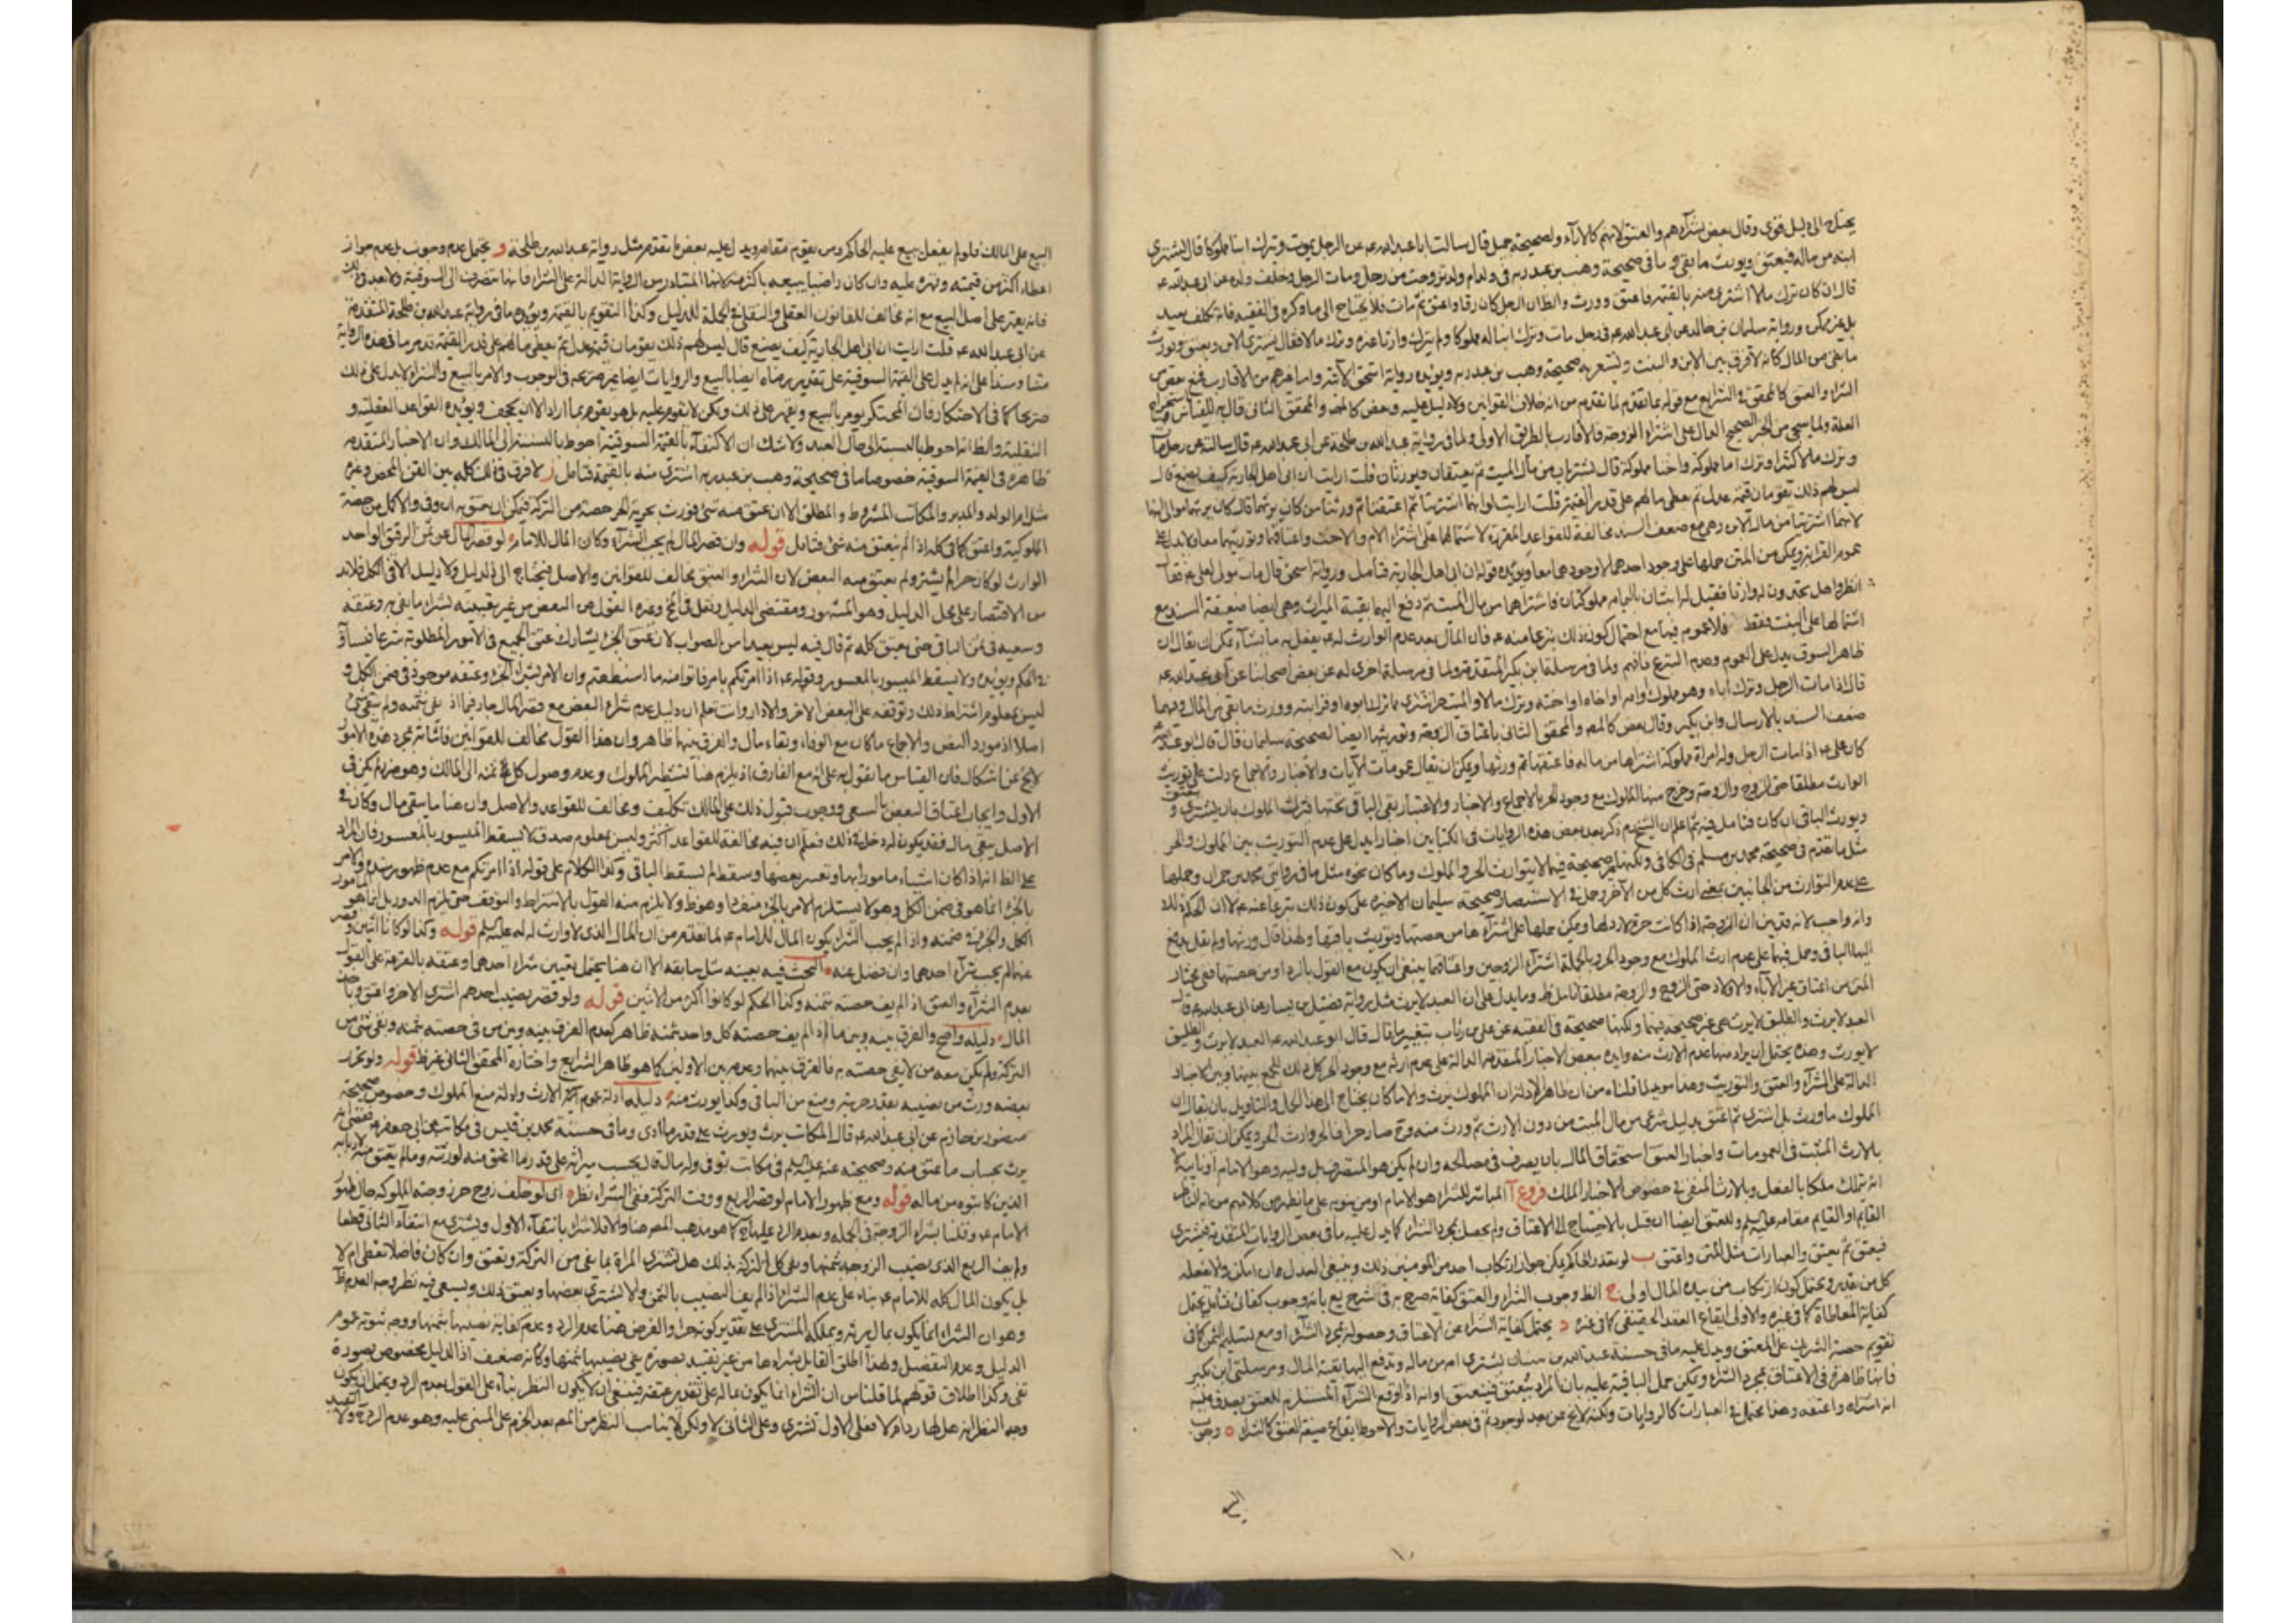 يحتاج الى دليل قوي وقال بعض بشرآءهم والعتق لانهم كالاباء ولصحيحة جميل قال سالت ابا عبدالله عن الرجل يموت وترك ابنا مملوكا قال يشتري
ابنه من ماله فيعتق ويورث ما بقي و ما في صحيحة وهب بن عبد ربه في ولد ام ولد تزوجت من رجل ومات الرجل وخلف ولده عن ابى عبدالله ع
قال ان كان ترك مالا اشترى منه بالقيمة فاعتق وورث والظ ان الرجل كان رقا واعتق ثم مات فلا يحتاج الى ما ذكره في الفقيه فانه تكلف بعيد
بل غير ممكن ورواية سليمان بن خالد عن ابى عبدالله ع في رجل مات وترك ابنا له مملوكا ولم يترك وارثا غيره وترك مالا فقال يشترى الابن ويعتق ويورث
ما بقي من المال كانه لا فرق بين الابن والبنت ويشعر به صحيحة وهب بن عبد ربه ويؤيده رواية اسحق الآتية واما غيرهم من الاقارب فمنع بعض من
الشراء والعتق كالمحقق في الشرايع مع قوله بما تقدم لما تقدم من انه خلاف القوانين ولا دليل عليه وبعض كالمص والمحقق الثاني قال به للقياس
العلة ولما سيجئ من الخبر الصحيح الدال على اشتراء الزوجة فالاقارب بالطريق الاولى ولما في رواية عبدالله بن طلحة عن ابى عبدالله ع قال سالته عن رجل مات
وترك مالا كثيرا وترك اما مملوكة واختا مملوكة قال تشتريان من مال الميت ثم يعتقان ويورثان قلت ارايت ان ابى اهل الجارية كيف يصنع قال
ليس لهم ذلك تقومان قيمة عدل ثم يعطى مالهم على قدر القيمة قلت ارايت لو انهما اشتريتا ثم اعتقتا ثم ورثتا من كان يرثهما قال كان يرثهما موالى ابنها
لانهما اشتريتا من مال الابن وهى مع ضعف السند مخالفة للقواعد المقررة لاشتمالها على اشتراء الام والاخت واعتاقهما وتوريثهما معا ولا يدل على
عموم القرابة ويمكن من المتن حملها على وجود احدهما لا وجودهما معا ويؤيده قوله ان ابى اهل الجارية فتامل ورواية اسحق قال مات مولى لعلى ع فقال
انظروا هل تجدون له وارثا فقيل له ابنتان باليمامة مملوكتان فاشتراهما من مال الميت ثم دفع اليهما بقية الميراث وهى ايضا ضعيفة السند مع
اشتمالها على البنت فقط فلا عموم فيها مع احتمال كون ذلك تبرعا منه ع فان المال بعد عدم الوارث له ع يفعل به ما يشآء يمكن ان يقال ان
ظاهر السوق يدل على العموم وعدم التبرع فافهم ولما في مرسلة ابن بكير المتقدمة ولما في مرسلة اخرى له عن بعض اصحابنا عن ابى عبدالله ع
قال اذا مات الرجل وترك اباه وهو مملوك وامه او اخاه او اخته وترك مالا والميت حر اشترى مما ترك ابوه او قرابته وورث ما بقى من المال وفيهما
ضعف السند بالارسال وابن بكير وقال بعض كالمص والمحقق الثانى باعتاق الزوجة وتوريثها ايضا لصحيحة سليمان قال قال ابو عبدالله
كان على ع اذا مات الرجل وله امراة مملوكة اشتراها من ماله فاعتقها ثم ورثها ويمكن ان يقال عمومات الآيات والاخبار والاجماع دلت على توريث
الوارث مطلقا حتى الزوج والزوجة وخرج منها المملوك مع وجود الحر بالاجماع والاخبار والاعتبار بقى الباقى تحتها فترك المملوك بان يشترى و يعتق
ويورث الباقى ان كان فتامل فيه ثم اعلم ان الشيخ ره ذكر بعد بعض هذه الروايات في الكتابين اخبارا يدل على عدم التوريث بين المملوك والحر
مثل ما تقدم في صحيحة محمد بن مسلم في الكافى ولكنها غير صحيحة فيهما لا يتوارث الحر والمملوك وما كان نحوه مثل ما في رواية محمد بن حمران وحملها
على عدم التوارث من الجانبين بمعنى ارث كل من الآخر وحمل في الاستبصار صحيحة سليمان الاخيرة على كون ذلك تبرعا عنه ع
وانه واجب لانه قد بين ان الزوجة اذا كانت حرة لا رد لها ويمكن حملها على اشترآءها من حصتها وتوريث باقيها ولهذا قال ورثها ولم يقل يدفع
اليها الباقى وحمل فيهما على عدم ارث المملوك مع وجود الحر وبالجملة اشترآء الزوجين واعتاقهما ينبغى ان يكون مع القول بالرد او من حصتها
المتن من اعتاق غير الآباء والاولاد حتى الزوج والزوجة مطلقا تامل ظ ومما يدل على ان العبد لا يرث مثل رواية فضيل بن يسار عن ابى عبدالله ع قال
العبد لا يرث والطليق لا يرث هى غير صحيحة فيهما ولكنها صحيحة في الفقيه عن على بن رئاب بتغيير ما قال قال ابو عبدالله ع العبد لا يرث والطليق
لا يورث وهذه يحتمل ان يراد منها عدم الارث منه وايده ببعض الاخبار المتقدمة الدالة على عدم ارثه مع وجود الحر كل ذلك للجمع بينها وبين الاخبار
الدالة على الشرآء والعتق والتوريث وهذا مويد لما قلناه من ان ظاهر الادلة ان المملوك يرث والا ما كان يحتاج الى هذا الحمل والتاويل بان يقال ان
المملوك ما ورث بل اشترى ثم اعتق بدليل شرعى من مال الميت من دون الارث ثم ورث منه وقد صار حرا فالحر وارث الحر ويمكن ان يقال المراد
بالارث المثبت في العمومات واخبار العتق استحقاق المال بان يصرف في مصالحه وان لم يكن هو المتصرف بل وليه وهو الامام او نايبه لا
انه يتملك ملكا بالفعل وبالارث المنفى في خصوص الاخبار الملك فروع آ المباشر للشراء هو الامام او من ينوبه على ما نظهر من كلامهم
القايم او القايم مقامه عليه السلم وللعتق ايضا ان قيل بالاحتياج الى الاعتاق ولم يحصل بمجرد الشراء كما يدل عليه ما في بعض الروايات المتقدمة يشترى
فيعتق ثم يعتق والعبارات مثل المتن واعتق ب لو تعذر الحاكم يمكن جواز ارتكاب احد من المومنين ذلك وينبغى العدل مهما امكن ولا يفعله
كل من يقدر ويحتمل كون ارتكاب من بيده المال اولى ج الظ وجوب الشراء والعتق كفائة صرح به في الشرايع بانه وجوب كفائى فتامل يحتمل
كفاية المعاطاة كما في غيره والاولى ايقاع العقد الحقيقى كما في غيره د يحتمل كفاية الشراء عن الاعتاق وحصوله بمجرد الشراء او مع تسليم الثمن كما في
تقويم حصة الشريك على المعتق ويدل عليه ما في حسنة عبدالله بن سنان تشترى امه من ماله وتدفع اليها بقية المال ومرسلتى ابن بكير
فانها ظاهرة في الاعتاق بمجرد الشراء ويمكن حمل الباقية عليه بان المراد بيعتق فينعتق او انه اذا وقع الشرآء المستلزم للعتق يصدق عليه
انه اشتراه واعتقه وهذا يحتمل في العبارات كالروايات ولكنه لا يخ عن بعد لوجود ثم في بعض الروايات والاحوط ايقاع صيغة للعتق كالشراء ه وجوب
البيع على المالك فلو لم يفعل يبيع عليه الحاكم ومن يقوم مقامه ويدل عليه بعض ما تقدم مثل رواية عبدالله بن طلحة و يحتمل عدم وجوب بل عدم جواز
اعطاء اكثر من قيمته وقهره عليه وان كان راضيا ببيعه باكثر منه لانها المتبادر من الرواية الدالة على الشراء فانها تنصرف الى السوقية
فانه يعتبر على اصل البيع مع انه مخالف للقانون العقلى والنقلى في الجملة للدليل وكذا التقويم بالقيمة ويؤيده ما في رواية عبدالله بن طلحة المتقدمة
عن ابى عبدالله ع قلت ارايت ان ابى اهل الجارية كيف يصنع قال ليس لهم ذلك يقومان قيمة عدل ثم يعطى مالهم على قدر القيمة تدبر ما في هذه الرواية
متنا وسندا على انه لم يدل على القيمة السوقية على تقدير رضاه ايضا بالبيع والروايات ايضا غير صريحة في الوجوب والامر بالبيع والشراء لا يدل على ذلك
صريحا كما في الاحتكار فان المحتكر يومر بالبيع ويقهر على ذلك ولكن لا يقوم عليه بل هو يقوم بما اراد الا ان يجحف ويؤيده القواعد العقلية و
النقلية والظ انه احوط بالنسبة الى حال العبد ولا شك ان الاكتفاء بالقيمة السوقية احوط بالنسبة الى المالك وان الاخبار المتقدمة
ظاهرة في القيمة السوقية خصوصا ما في صحيحة وهب بن عبد ربه اشترى منه بالقيمة فتامل ز لا فرق في ذلك كله بين القن المحض وغيره
مثل ام الولد والمدبر والمكاتب المشروط والمطلق الا ان عتق منه شئ فورث بحرية الحر حصة من التركة فيمكن ان يعتق به ان وفى والا كمل من حصة
المملوكية واعتق كما في كله اذا لم ينعتق منه شئ فتامل قوله وان قصر المال لم يجب الشرآء وكان المال للامام لو قصر المال عن ثمن الرقيق الواحد
الوارث لو كان حرا لم يشتر ولم يعتق منه البعض لان الشراء والعتق مخالف للقوانين والاصل فيحتاج الى الدليل ولا دليل الا في الكل فلابد
من الاقتصار على محل الدليل وهو المشهور ومقتضى الدليل ونقل في يج وغيره القول عن البعض من غير تعيينه لشراء ما يفى به وعتقه
وسعيه في ثمن الباقى حتى يعتق كله ثم قال فيه ليس بعيدا من الصواب لان عتق الجزء يشارك عتق الجميع في الامور المطلوبة شرعا فيساوى
في الحكم ويؤيده ولا يسقط الميسور بالمعسور وقوله ع اذا امرتكم بامر فاتوا منه ما استطعتم وان الامر بشراء الجزء وعتقه موجود في ضمن الكل و
ليس بمعلوم اشتراط ذلك وتوقفه على البعض الآخر والا دار واعلم ان دليل عدم شراء البعض مع قصر المال جار فيما اذا بقى ثمنه ولم يبق شئ
اصلا اذ مورد النص والاجماع ما كان مع الوفاء وبقاء مال والفرق بينهما ظاهر وان هذا القول مخالف للقوانين فاثباته بمجرد هذه الامور
لايخ عن اشكال فان القياس ما نقول به على انه مع الفارق اذ يلزم هنا تشطير المملوك وعدم وصول كل ثمنه الى المالك وهو ضرر لم يكن في
الاول وايجاب اعتاق البعض بالسعى ووجوب قبول ذلك على المالك تكليف ومخالف للقواعد والاصل وان هنا ما يبقى مال وكان في
الاصل يبقى ماله فقد يكون له دخل في ذلك فعلم ان فيه مخالفة للقواعد اكثر وليس بمعلوم صدق لا يسقط الميسور بالمعسور فان المراد
على الظ انه اذا كان اشياء مامورا بها وتعسر بعضها وسقط لم يسقط الباقى وكذا الكلام على قوله اذا امرتكم مع عدم ظهور سنده والامر
بالجزء انما هو في ضمن الكل وهو لا يستلزم الامر بالجزء منفردا وهو ظ ولا يلزم منه القول بالاشتراط والتوقف حتى يلزم الدور بل انما هو المامور
الكل والجزء في ضمنه واذا لم يجب الشراء يكون المال للامام ع لما تقدم من ان المال الذى لا وارث له له عليه السلم قوله وكذا لو كانا اثنين و قصر
عنهما لم يجب شرآء احدهما وان فضل عنه البحث فيه بعينه مثل سابقه الا ان هنا يحتمل تعيين شراء احدهما وعتقه بالقرعة على القول
بعدم الشرآء والعتق اذا لم يف حصته بثمنه وكذا الحكم لو كانوا اكثر من الاثنين قوله ولو قصر نصيب احدهم اشترى الآخر واعتق وياخذ
المال دليله واضح والفرق بينه وبين ما اذا لم يف حصته كل واحد بثمنه ظاهر كعدم الفرق بينه وبين من في حصته بثمنه وبقى شئ من
التركة ولم يكن معه من لا يفى حصته به فالفرق بينهما وعدمه بين الاولين كما هو ظاهر الشرايع واختاره المحقق الثانى غير ظ قوله ولو تحرر
بعضه ورث من نصيبه بقدر حريته ومنع من الباقى وكذا يورث منه دليله ادلة عموم آية الارث وادلة منع المملوك وخصوص صحيحة
منصور بن حازم عن ابى عبدالله ع قال المكاتب يرث ويورث على قدر ما ادى وما في حسنة محمد بن قيس في مكاتب عن ابى جعفر ع
يرث بحساب ما عتق منه وصحيحته عنه عليه السلم في مكاتب توفى وله مال قال يحسب ميراثه على قدر ما اعتق منه لورثته وما لم يعتق منه لاربابه
الذين كاتبوه من ماله قوله ومع ظهور الامام لو قصر الربع ووفت التركة ففى الشراء نظر اى لو خلف زوج حر زوجته المملوكة حال ظهور
الامام ع وقلنا بشراء الزوجة في الجملة وبعدم الرد عليها كما هو مذهب المص هنا والا فلا شراء بانتفاء الاول ويشترى مع انتفاء الثانى قطعا
ولم يف الربع الذى نصيب الزوجة بثمنها ويفى كل التركة بذلك هل تشترى المراة بما بقى من التركة وتعتق وان كان فاضلا تعطى ام لا
بل يكون المال كله للامام ع بناء على عدم الشراء اذا لم يف النصيب بالثمن ولا يشترى بعضها ويعتق ذلك ويسعى فيه نظر وجه العدم ظ
وهو ان الشراء انما يكون بمال يرثه ويملكه المشترى على تقدير كونه حرا والفرض هنا عدم الرد وعدم كفاية نصيبها بثمنها ووجه ثبوته عموم
الدليل وعدم التفصيل ولهذا اطلق القائل بشراءها من غير تقييد بصورة يفى نصيبها بثمنها وكانه ضعيف اذ الدليل مخصوص بصورة
تفى وكذا اطلاق قولهم لما قلناس ان الشراء انما يكون بماله على تقدير عتقه فينبغى ان لا يكون النظر بناء على القول بعدم الرد ويحتمل ان يكون
وجه النظر انه هل لها رد ام لا فعلى الاول تشترى وعلى الثانى لا ولكن لا يناسب النظر من المص بعد الجزم على المبنى عليه وهو عدم الرد